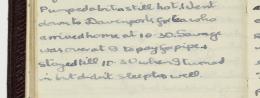 Pumped a bit as still hot. Went
down to Davenports for tea who
arrived home at 10.30. Savage
was over at 9 to pay for pipes
stayed till 10.30 when I turned
in but didn't sleep too well.